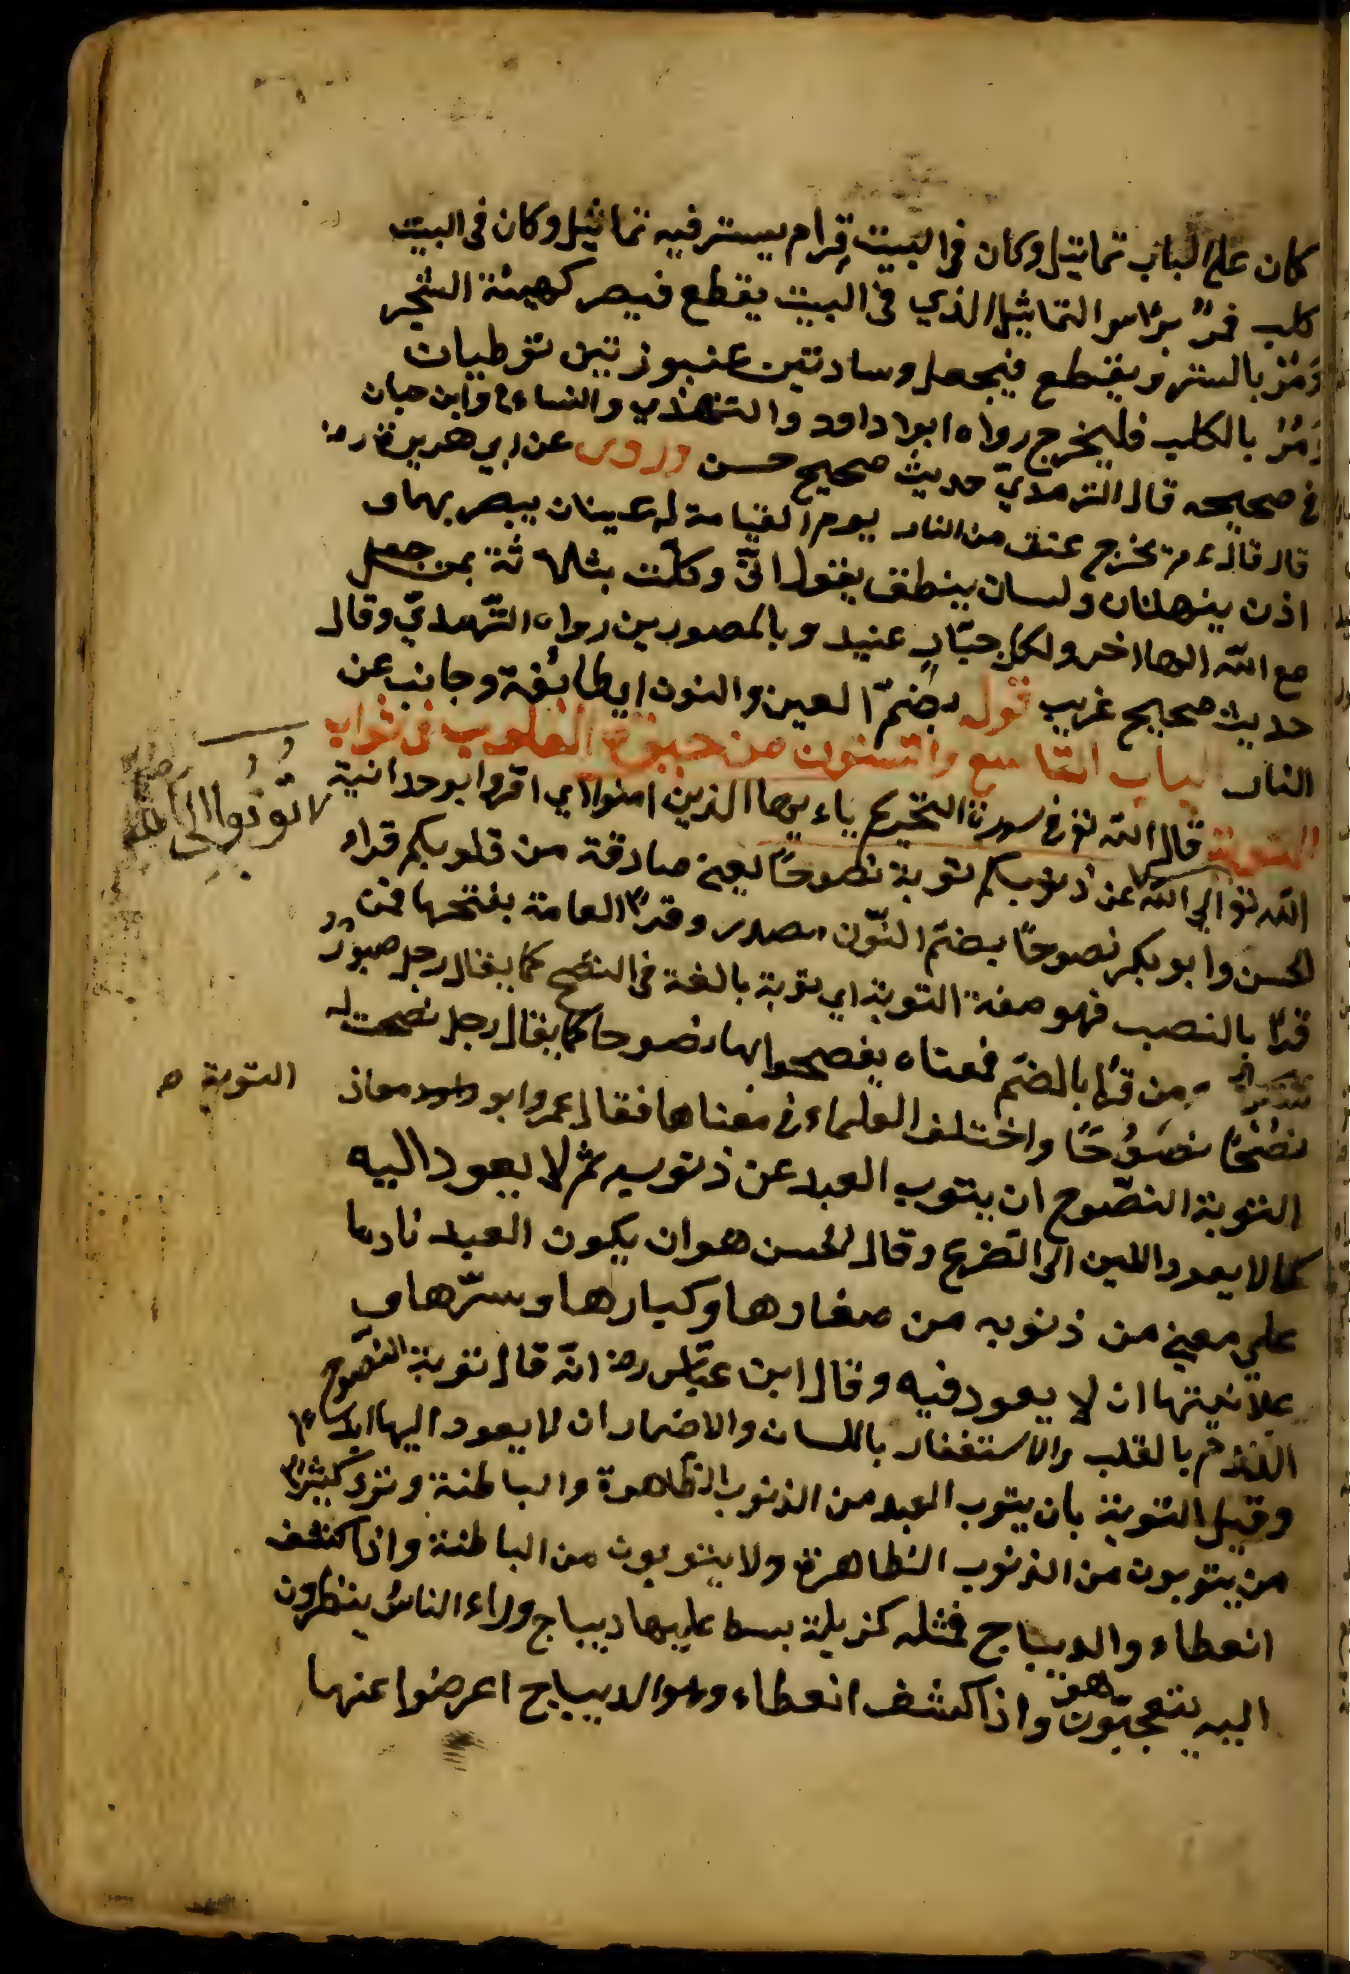 كان على الباب تماثيل وكان في البيت قِرام يستر فيه تماثيل وكان في البيت
كلب فمُرْ براس التماثيل الذي في البيت يقطع فيصر كهيئة الشجر
وَمُرْ بالستر يقطع فيجعل وسادتين منبوذتين توطيان
وَمُرْ بالكلب فليخرج رواه ابوا داود والترمذي والنساءي وابن حبان
في صحيحه قال الترمذيّ حديث صحيح حسن وروى عن ابي هريرة رض
قال قال عم يخرج عنق من النار يوم القيامة له عينان يبصر بهما و
اذن ينهلان ولسان ينطق يقول انيّ وكلّت بثلاثة بمن جعل
مع الله الها اخر ولكل جبّار عنيد وبالمصورين رواه الترّمذيّ وقال
حديث صحيح غريب قوله بضمّ العين والنون اي طائفة وجانب عن
النار الباب التاسع والستون من حيوة القلوب في ثواب
التوبة قال الله تع في سورة التحريم ياءيها الذين امنوا اي اقروا بوحدانية
الله توا الي الله عن ذنوبكم توبة نصوحًا يعني صادقة من قلوبكم قراء
الحسن وابو بكر نصوحًا بضمّ النوّن مصدر وقراء العامة بفتحها فمن
قرأ بالنصب فهو صفة التوبة اي توبة بالغة في النصح كما يقال رجل صبورٌ
ومن قرأ بالضمّ فمعناه ينصحوا بها نصوحا كما يقال رجل نصحت له
نصُحًا نصَوُحًا واختلف العلماء في معناها فقال عمر وابو معاذ
التوبة
التوبة النصّوح ان يتوب العبد عن ذنوبه ثم لا يعود اليه
كما لا يعود اللبن الى الضّرع وقال الحسن هو ان يكون العبد نادما
علي معني من ذنوبه من صغارها وكبارها وسرّها و
علانيتها ان لا يعود فيه وقال ابن عبّاس رض انّه قال توبة النصّوح
النّدم بالقلب والاستغفار باللسان والاضمار ان لا يعود اليها ابدا
وقيل التوبة بان يتوب العبد من الذنوب الظّاهرة والباطنة وترى كثيرا
من يتوبون من الذنوب الظاهرة ولا يتوبون من الباطنة واذا كشف
انعطاء والديباج فمثله كمزبلة بسط عليها ديباج وراء الناس ينظرون
اليه يتعجبّون هو واذا كشف انعطاء والديباج اعرضوا عنها
تُوبُوا الى الله